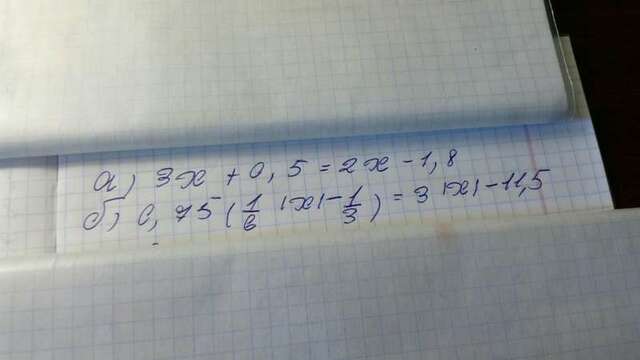 а) 3x + 0,5 = 2x - 1,8
б) 0,75 (1/6 |x| - 1/3) = 3 |x| - 11,5